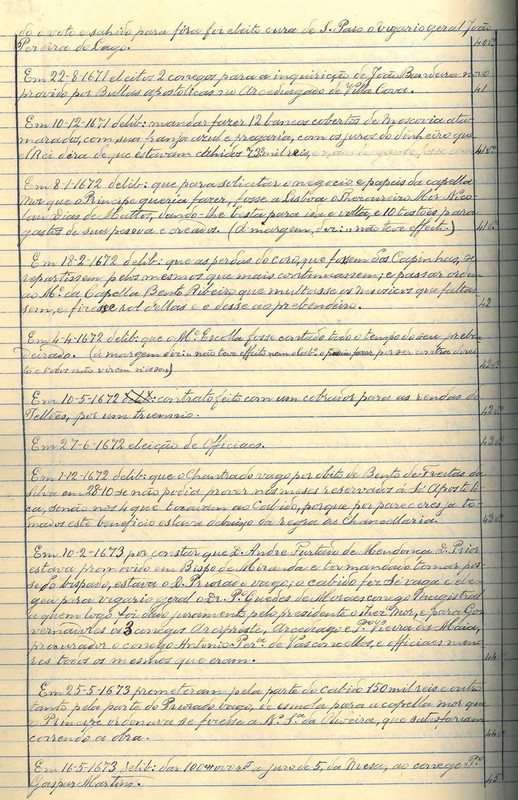 do o voto e sahido para fóra foi eleito cura de S. Paio o vigario geral João
Pereira do Lago. 40vº
Em 22-8-1671 eleitos 2 conegos para a inquirição de João Bandeira novo
provido por Bullas apostolicas no Arcediagado de Villa Cova. 41
Em 10-12-1671 delib: mandar fazer 12 bancos cobertos de Moscovia ata-
marados, com sua franja azul e pregaria, com os juros do dinheiro que
el Rei déra de que estavam cahidos 73 mil reis, 41vº
Em 8-1-1672 delib: que para solicitar o negocio e papeis da capella
Mor que o Principe queria fazer, fosse a Lisboa o Procurador Mor Nico-
lau Dias de Mattos, dando-lhe besta para ida e volta, e 10 tostões para
gastos de sua pessoa e creados. (Á margem, diz: não teve effeito.) 41vº
Em 18-2-1672 delib: que as perdas do coro, que fossem dos Capinhas, se
repartissem pelos mesmos que mais continuassem; e passar ordem
ao Mᵉ. da Capella Bento Ribeiro que multasse os musicos que faltas-
sem, e fizesse rol dellas e o desse ao prebendeiro. 42
Em 4-4-1672 delib: que o Mᵉ Escolla fosse contado todo o tempo do seu preben-
deirado. (á margem diz: não teve effeito nem elab: o podiam fazer por ser contra direi-
to e todos não virem nisso.) 42vº
Em 10-5-1672 contrato feito com um cobrador para as rendas de
Tellões, por um triennio. 42vº
Em 27-6-1672 eleição de Officiaes. 43vº
Em 1-12-1672 delib: que o Chantrado vago por obito de Bento de Freitas da
Silva em 28-10 se não podia prover nos meses reservados á Sé Apostoli-
ca, senão nos 4 que tocavam ao Cabido, porque por pareceres já to-
mados este beneficio estava debaixo da regra da Chancellaria. 43vº
Em 10-2-1673 por constar que D. André Furtado de Mendonça D. Prior
estava promovido em Bispo de Miranda e ter mandado tomar pos-
se do bispado, estava o D. Priorado vago; o cabido fez Sé vaga e ele-
geu para vigario geral o Dr. Pº Guedes de Moraes conego Magistral
a quem logo foi dado juramento pelo presidente o Thezº Mor, e para Go-
vernadores os 3 conegos Arcipreste, Arcediago e Pº Vieira da Maia,
procurador o conego Antonio Perª. de Vasconcellos, e officiaes meno-
res todos os mesmos que eram. 44
Em 25-5-1673 prometeram pela parte do Cabido 150 mil reis e outro
tanto pela parte do Priorado vago, de esmola para a capella mor que
o Principe ordenava se fizesse a N. Sª. da Oliveira, que satisfariam
correndo a obra. 44vº
Em 16-5-1673 delib: dar 100$000 rˢ a juro de 5, da Mesa, ao conego Pº
Gaspar Martins. 45